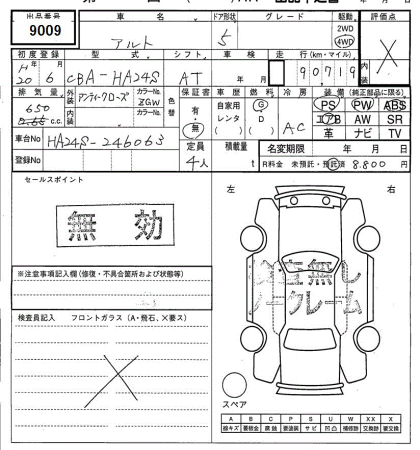 出品番号 車名 ドア形状 グレード 駆動 評価点
9009 アルト 5 2WD 4WD X
初度登録 型式 シフト 車検 走行(km・マイル)
H20 6 CBA-HA24S AT 年 月 90719
排気量 外装 アンティークローズ カラーNo. ZGW 色替 保証書 車歴 燃料 冷房 装備(純正部品に限る)
650 c.c. 内装 カラーNo. 有・無 自家用 レンタ G・D AC PS PW ABS
エアB AW SR
革 ナビ TV
車台No HA24S-246063 定員 積載量 名変期限 年 月 日
登録No 4人 t R料金 未預託・預託済 8.800 円
セールスポイント 左 右
無効
※注意事項記入欄(修復・不具合箇所および状態等)
検査員記入 フロントガラス(A・飛石、X要ス)
検査無し
ノークレーム
スペア
A B C P S U W X XX
線キズ 要板金 腐蝕 要塗装 サビ 凹凸 補修跡 交換跡 要交換